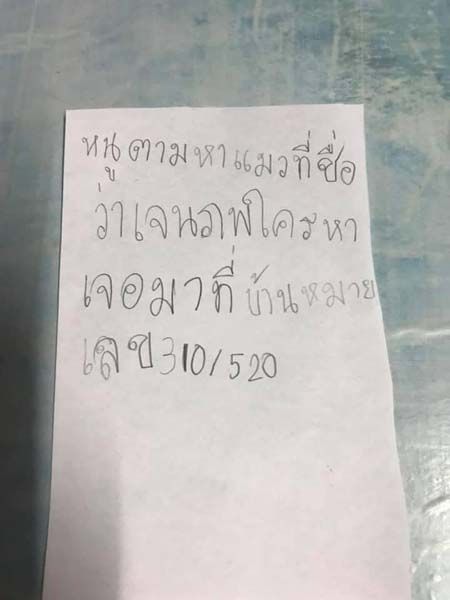 หนูตามหาแมวที่ชื่อ
ว่าเจนภพใครหา
เจอมาที่บ้านหมาย
เลข310/520